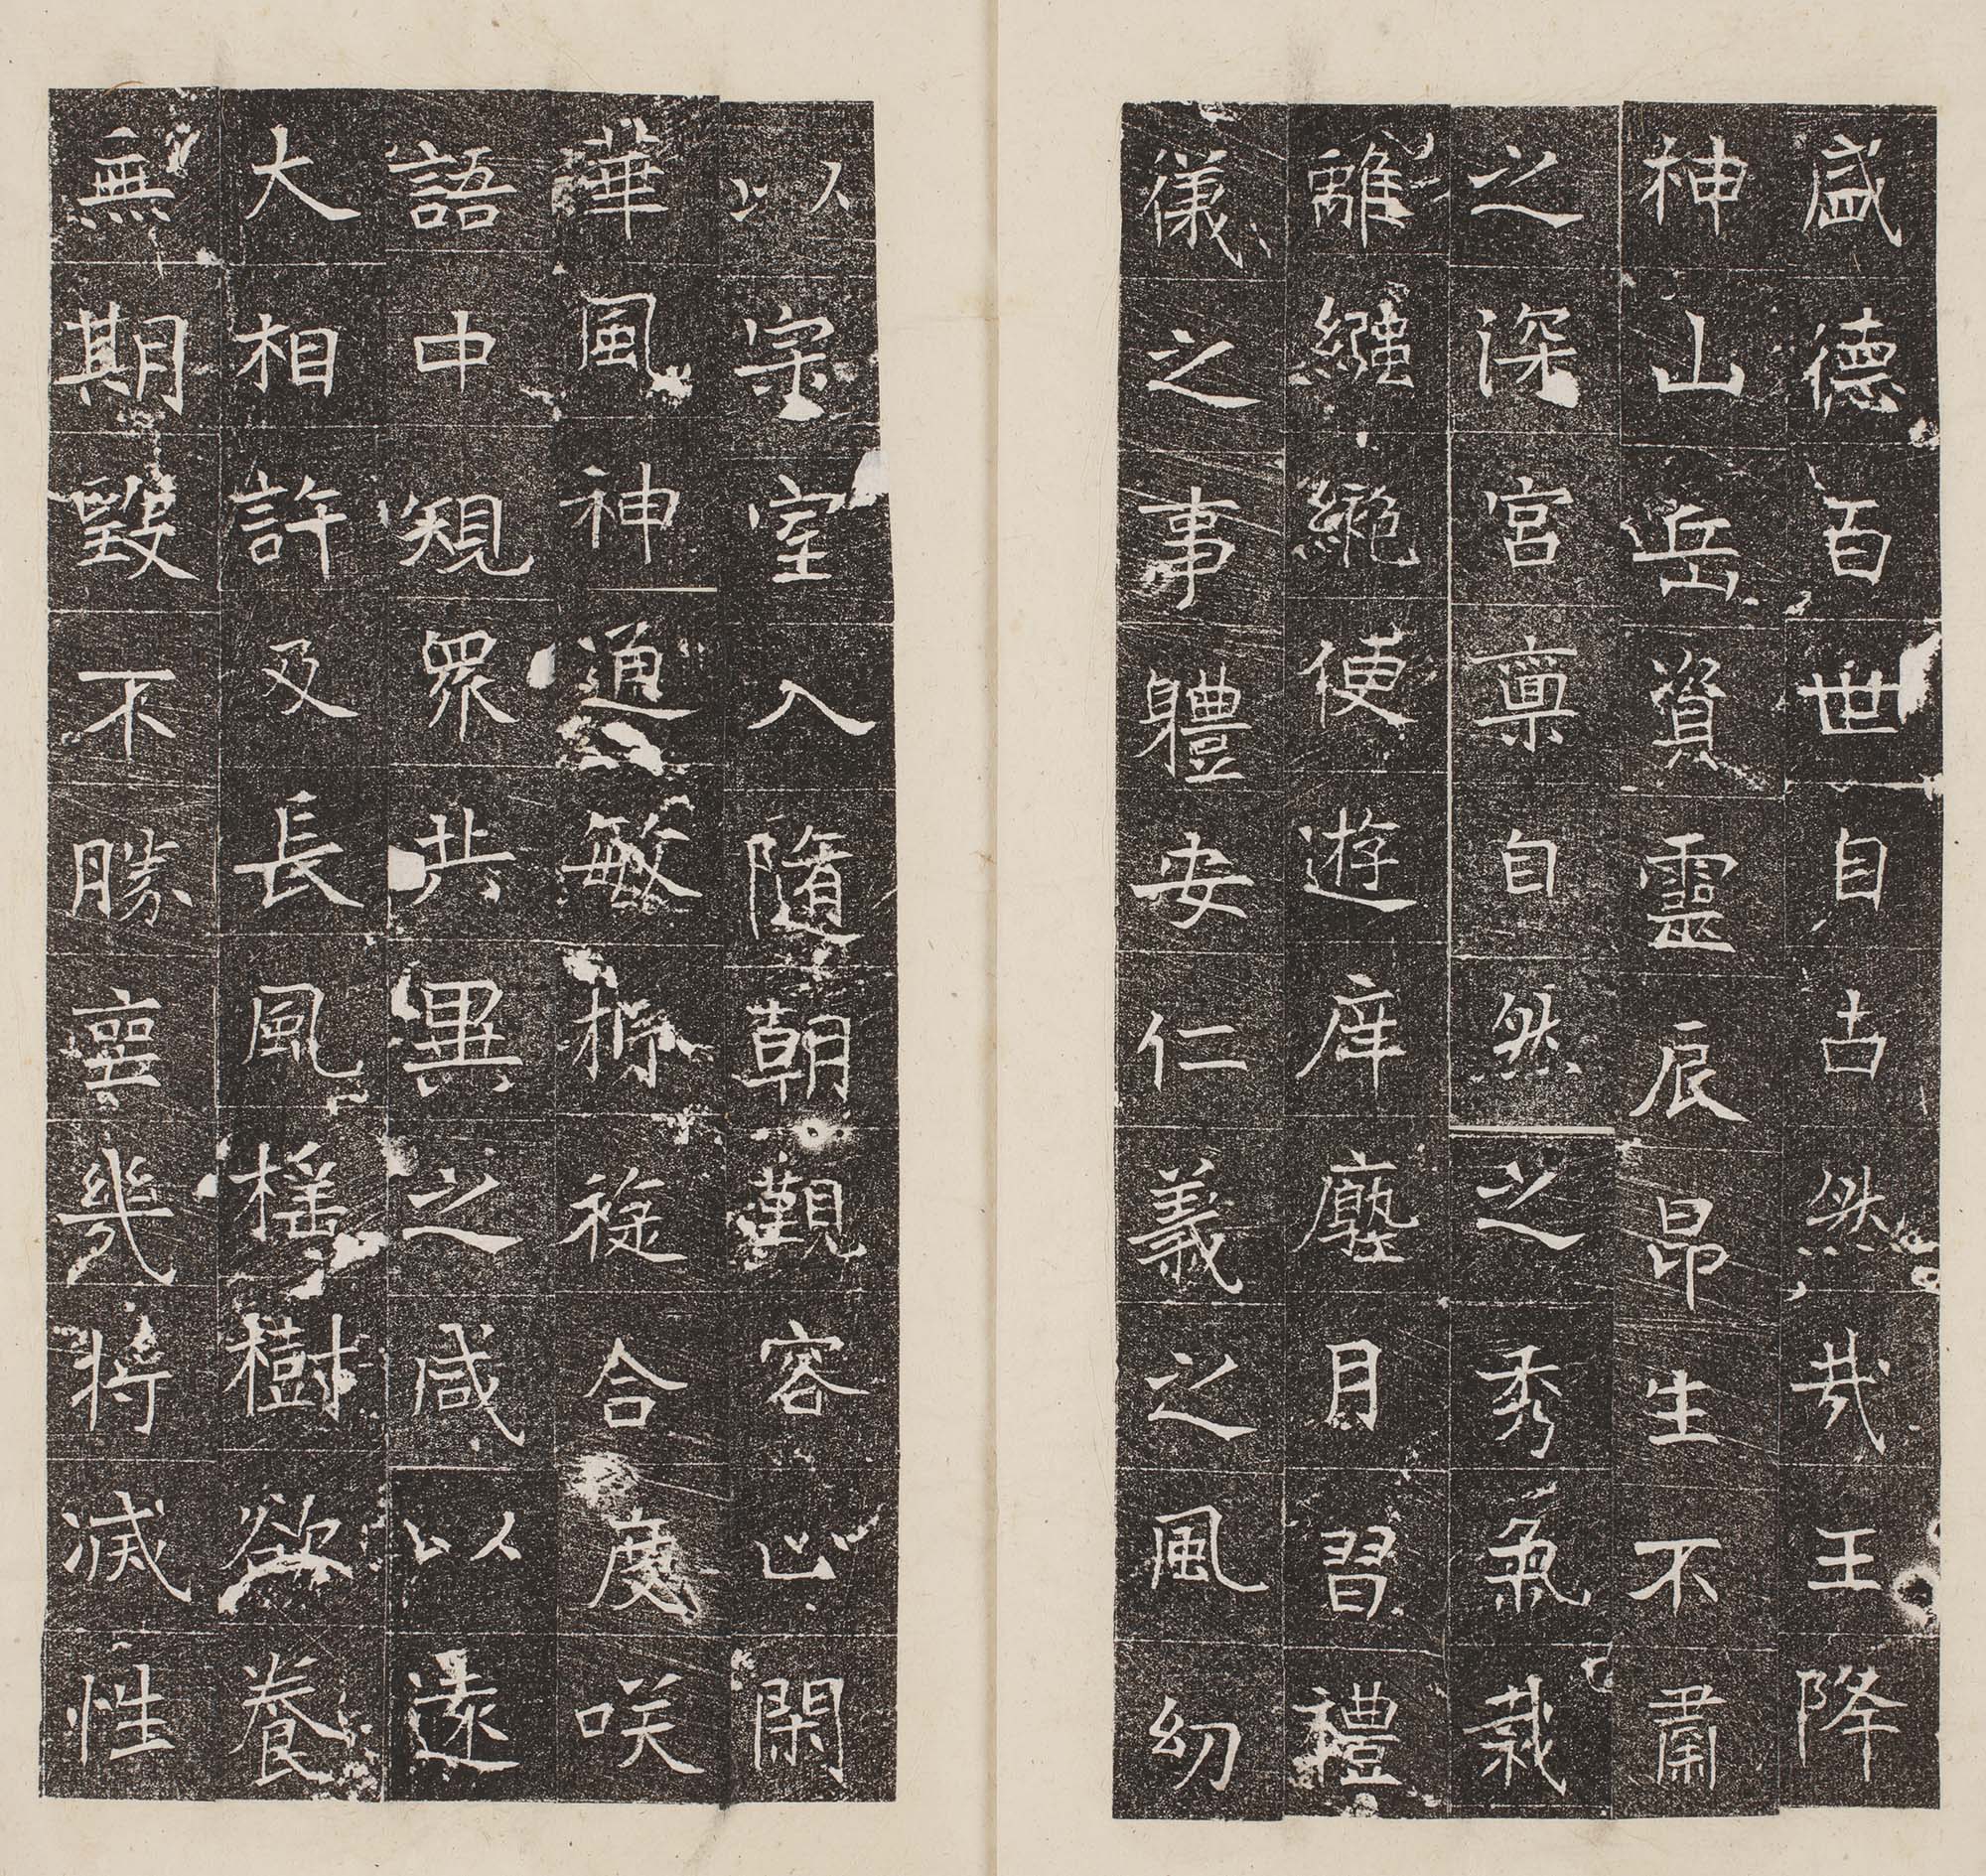 盛德百世自古然哉王降
神山岳資靈辰昴生不肅
之深宮稟自然之秀氣裁
離繈緥便遊庠塾目習禮
儀之事體安仁義之風幼
以宗室入隨朝覲容止閑
華風神通敏折旋合度咲
語中規眾共異之咸以遠
大相許及長風樹欲養
無期毀不勝喪幾將滅性